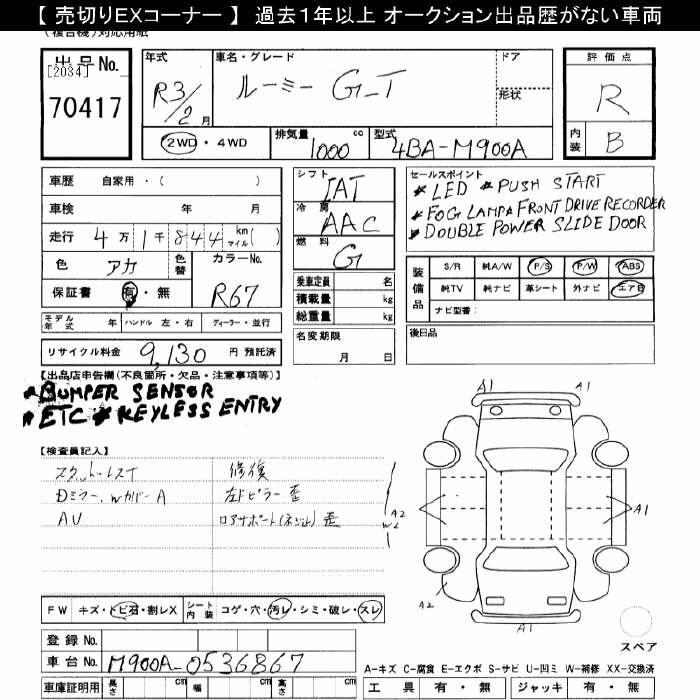 【 売切りEXコーナー 】 過去１年以上 オークション出品歴がない車両
(複合機)対応用紙
出 品 No.
[2034]
70417
年式
R3/2 月
車名・グレード
ルーミー G-T
ドア
形状
評 価 点
R
内装
B
2WD ・ 4WD
排気量 1000 cc
型式 4BA-M900A
車歴 自家用・( )
車検 年 月
走行 4 万 1 千 8 4 4 km マイル( )
色 アカ
色替
カラーNo. R67
保証書 有・無
モデル年式 年
ハンドル 左・右
ディーラー・並行
リサイクル料金 9,130 円 預託済
シフト IAT
冷房 AAC
燃料 G
乗車定員 名
積載量 kg
総重量 kg
名変期限
月 日
セールスポイント
* LED * PUSH START
* FOG LAMP * FRONT DRIVE RECORDER
* DOUBLE POWER SLIDE DOOR
装備品
S/R 純A/W P/S P/W ABS
純TV 純ナビ 革シート 外ナビ エアB
ナビ型番:
後日品
【出品店申告欄(不良箇所・欠品・注意事項等)】
* BUMPER SENSOR
* ETC * KEYLESS ENTRY
【検査員記入】
スタットレスT 修復
Dミラー、WカバーA 左Fピラー歪
AU ロアサポート(ネジ止)歪
A1 A1
A2
W2
A1
A2
A1
スペア
FW キズ・トビ石・割レX
シート内装 コゲ・穴・汚レ・シミ・破レ・スレ
登録 No.
車台 No. M900A-0536867
車庫証明用 長さ cm 幅 cm 高さ cm
A－キズ C－腐食 E－エクボ S－サビ U－凹ミ W－補修 XX－交換済
工 具 有 ・ 無 ジャッキ 有 ・ 無